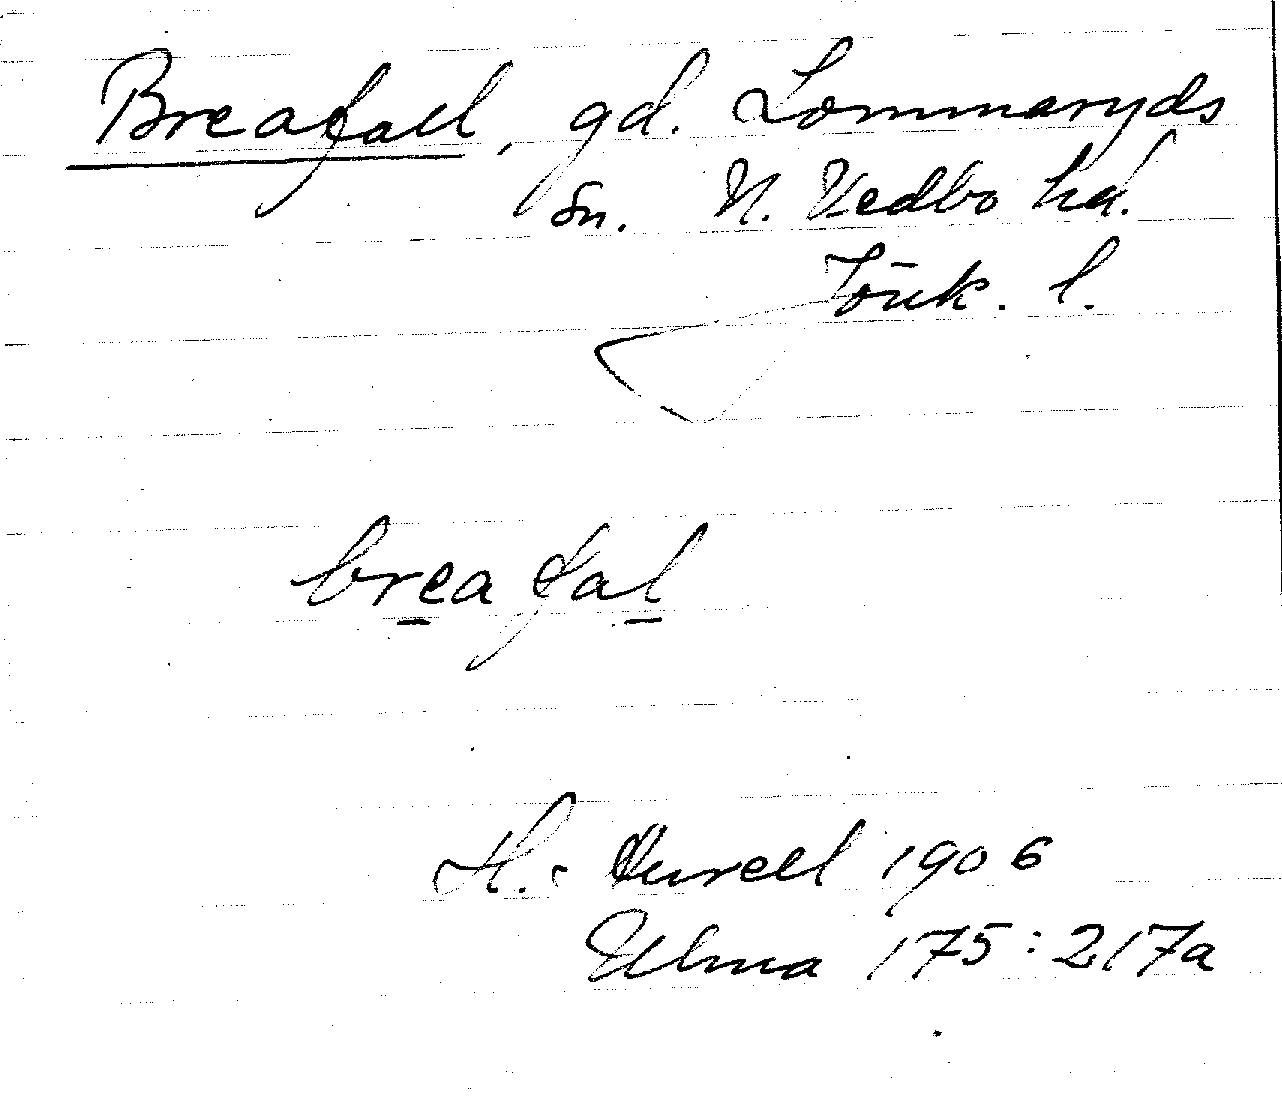 Breafall, gd. Lommaryds
sn. N. Vedbo hd.
Jönk. l.
breafal
H. Aurell 1906
Ulma 175:217a